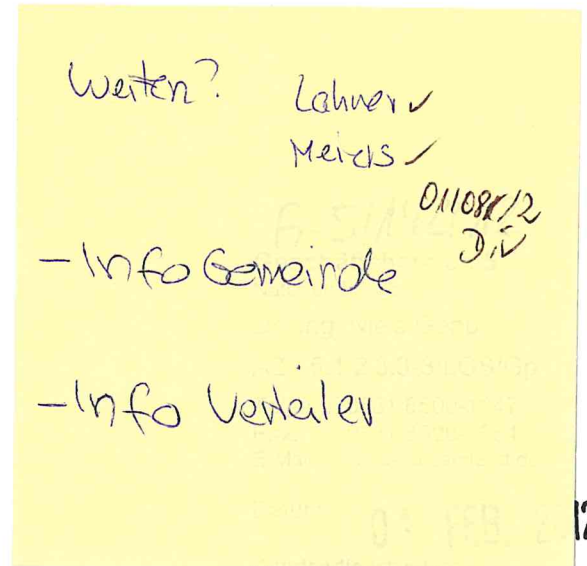 Weiten? Lahner ✓
Meiers ✓
Div
- Info Gemeinde
- Info Verteiler